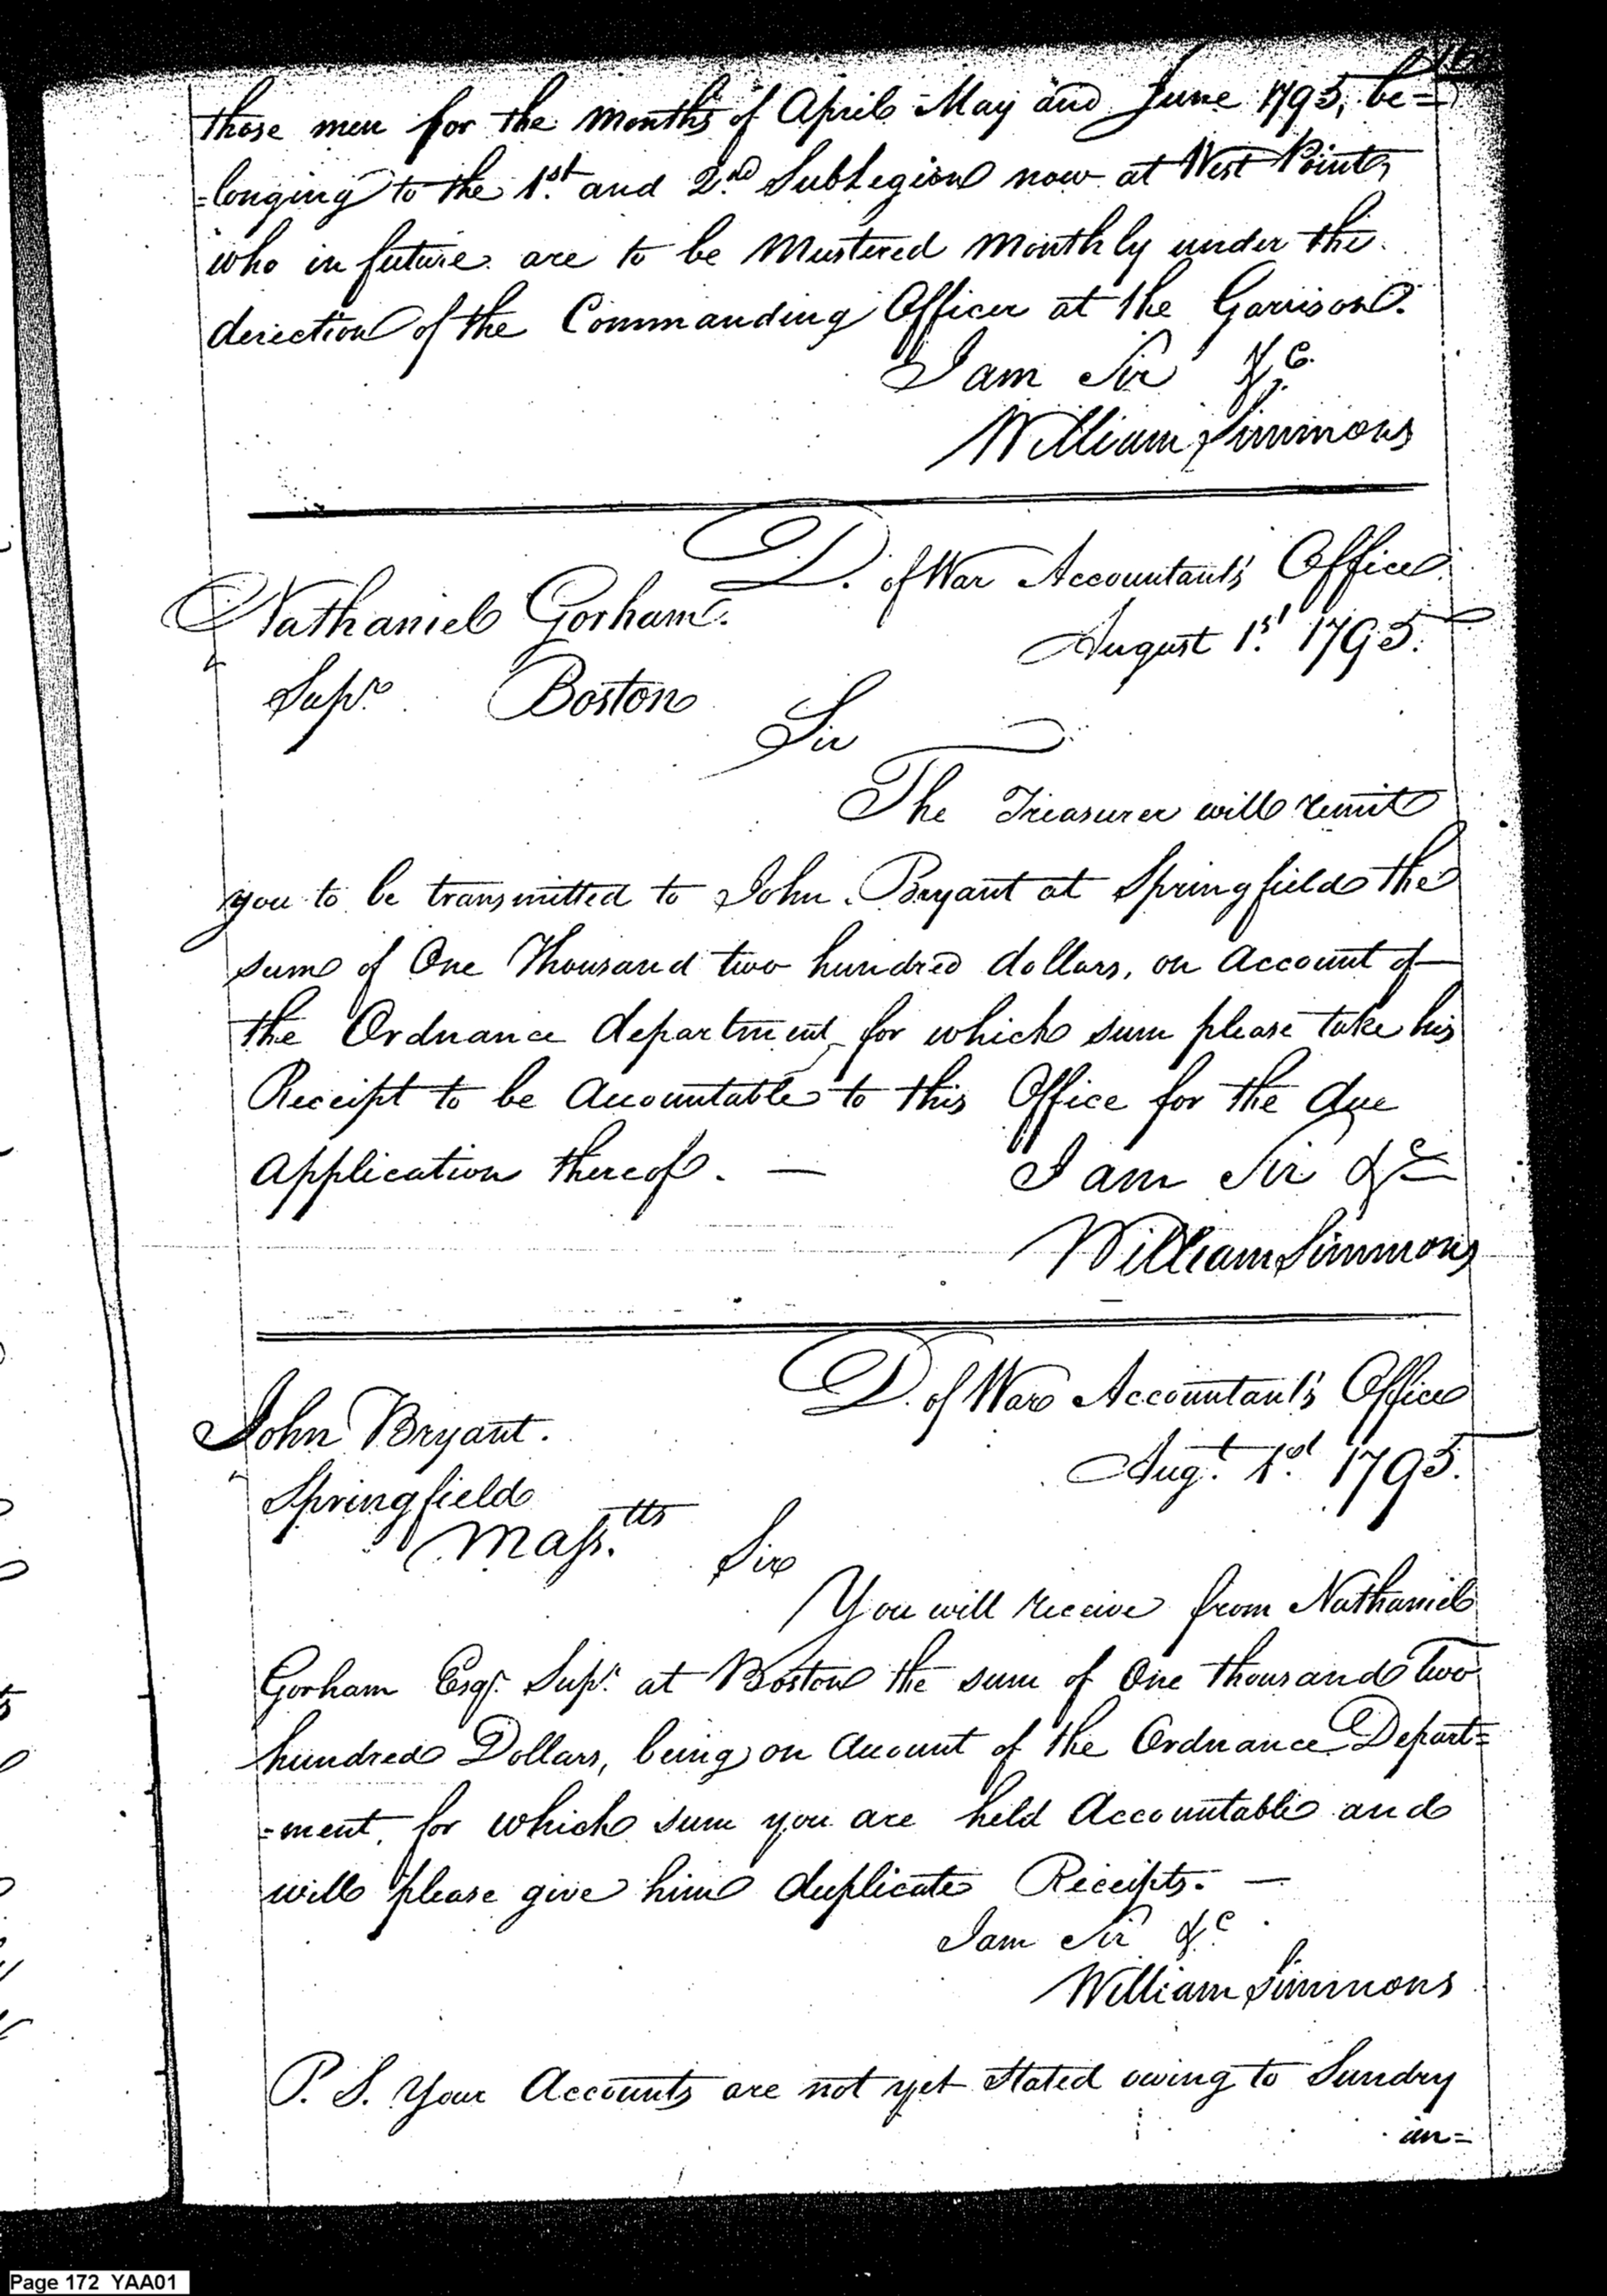 those men for the months of April May and June 1795, be=
=longing to the 1st. and 2nd. SubLegion now at West Point,
who in future are to be Mustered Monthly under the
derection of the Commanding Officer at the Garrison.
I am Sir &c.
William Simmons
D. of War Accountant's Office
Nathaniel Gorham.
August 1st. 1795.
Supr. Boston
Sir
The Treasurer will remit
you to be transmitted to John Bryant at Springfield the
sum of One Thousand two hundred dollars, on Account of
the Ordnance department, for which sum please take his
Receipt to be Accountable to this Office for the due
Application thereof. —
I am Sir &c
William Simmons
D. of War Accountant's Office
John Bryant.
Augt. 1st. 1795.
Springfield
Mass.tts
Sir
You will receive from Nathaniel
Gorham Esqr. Supr. at Boston the sum of One thousand Two
hundred Dollars, being on Account of the Ordnance Depart=
=ment, for which sum you are held Accountable and
will please give him duplicate Receipts. —
I am Sir &c.
William Simmons
P. S. Your Accounts are not yet Stated owing to Sundry
im=
Page 172 YAA01